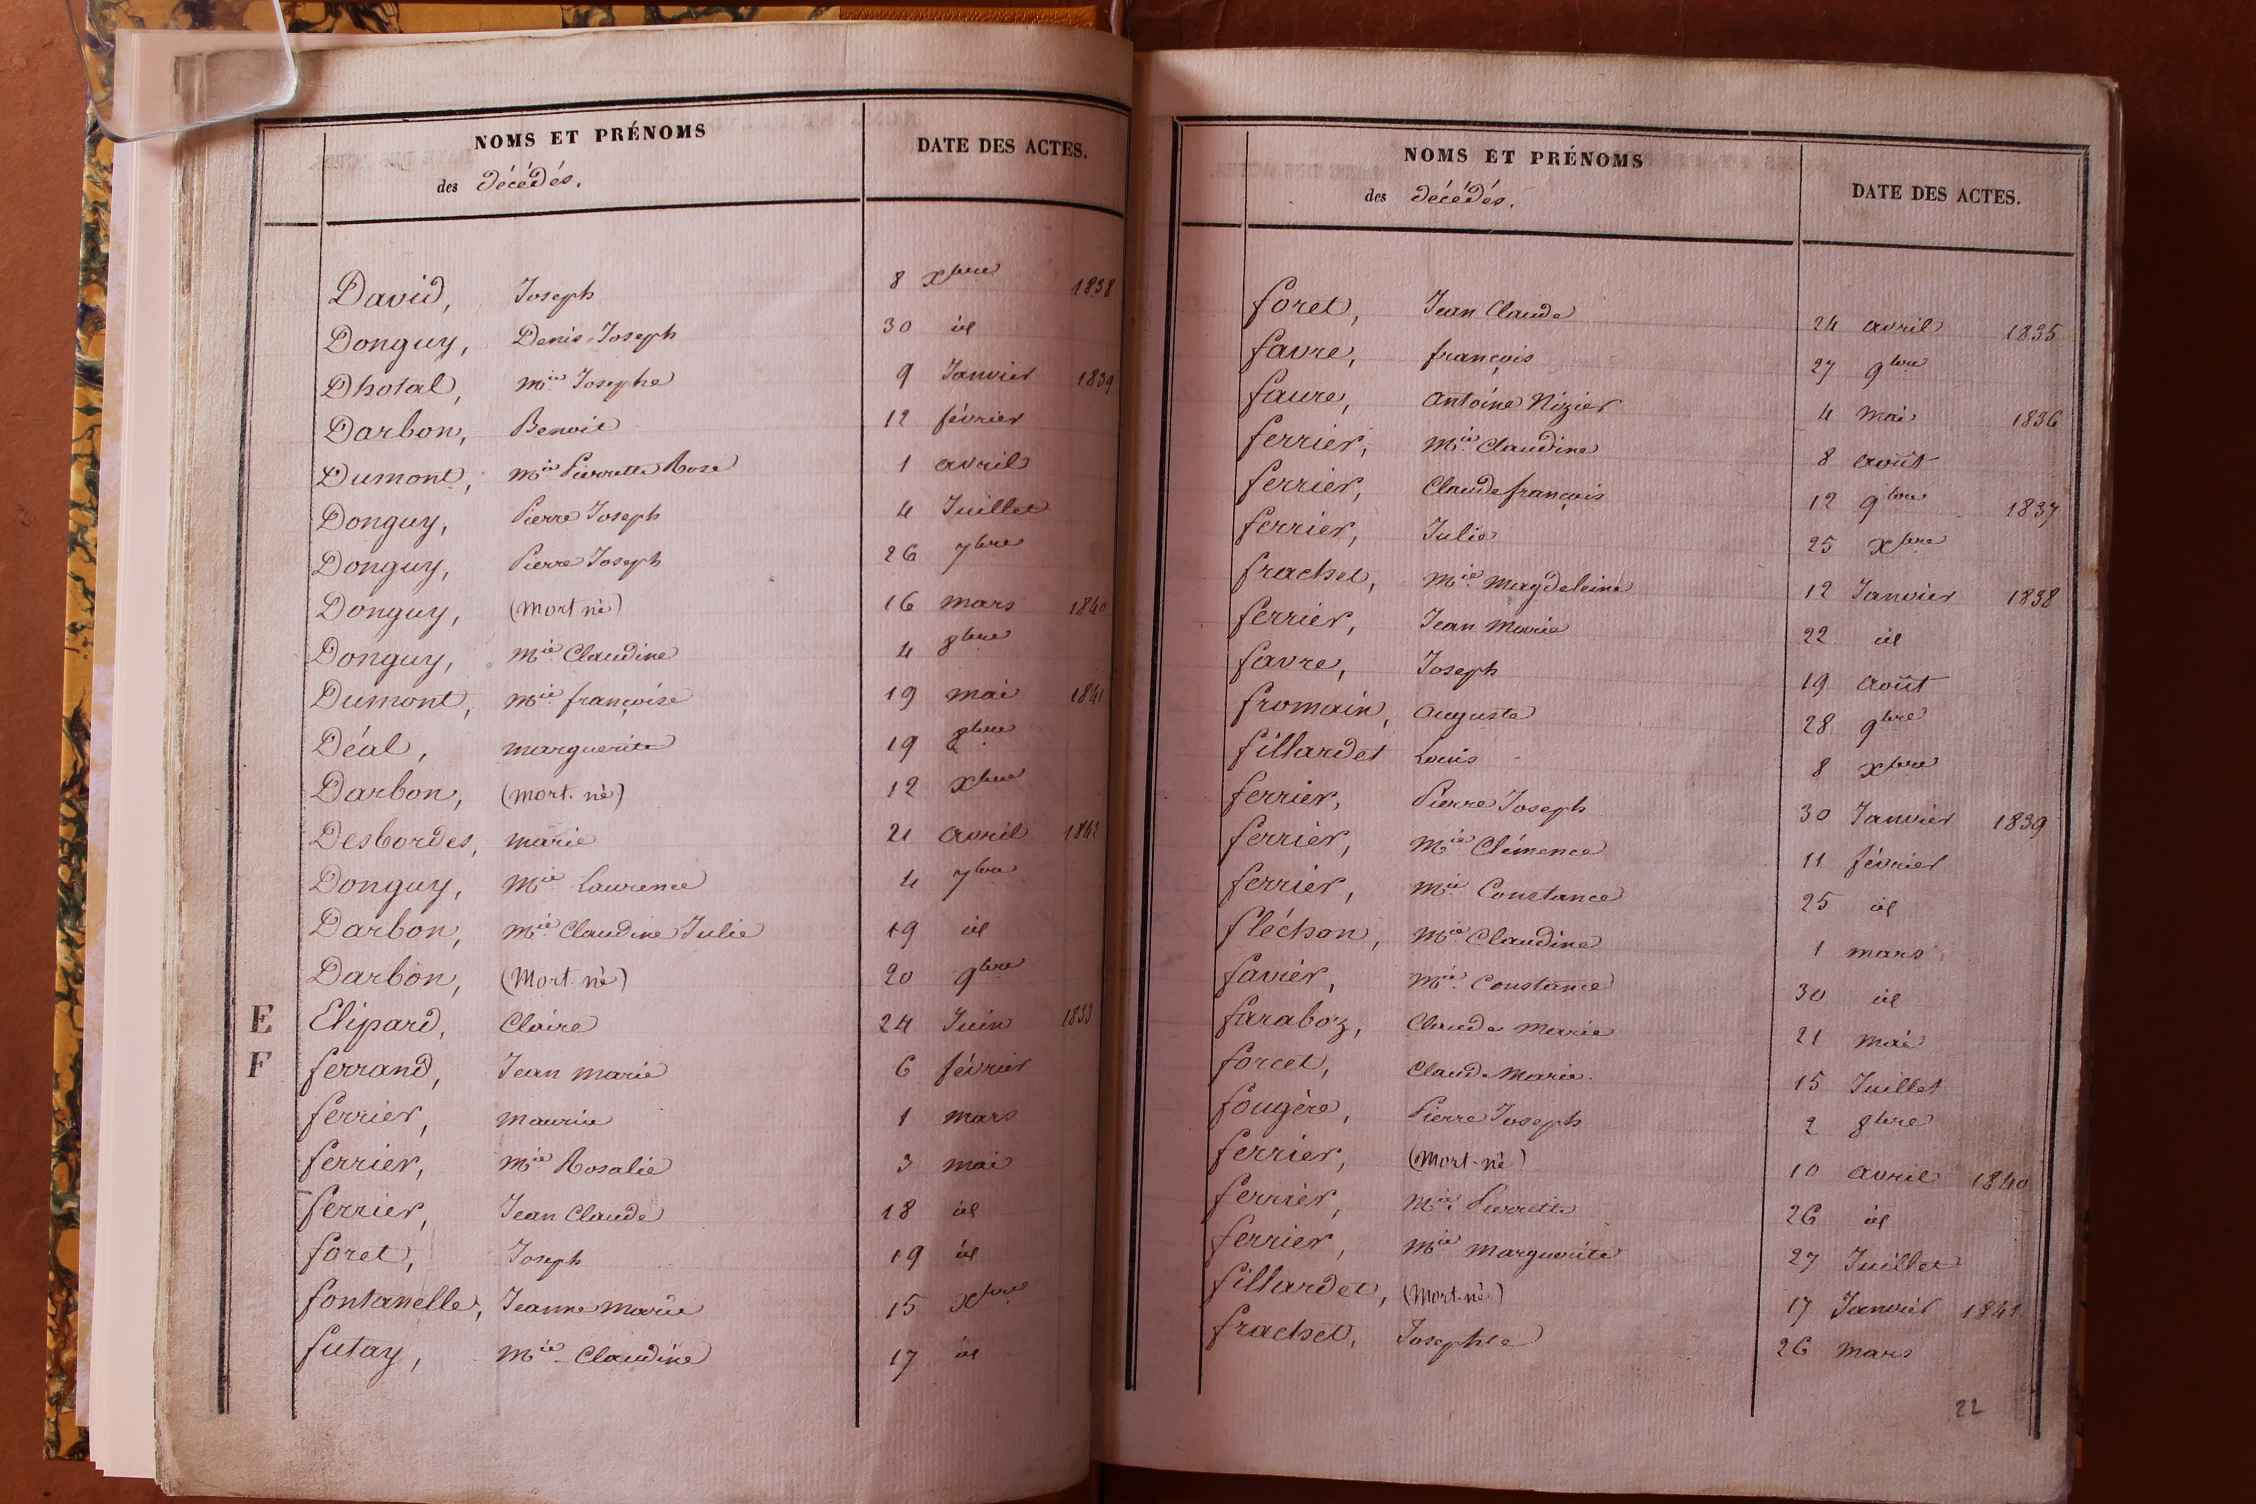 NOMS ET PRÉNOMS
des décédés.
DATE DES ACTES.
David, Joseph 8 Xbre 1838
Donguy, Denis Joseph 30 id
Dhotal, Mie Josephe 9 Janvier 1839
Darbon, Benoit 12 février
Dumont, Mie Pierrette Rose 1 avril
Donguy, Pierre Joseph 4 Juillet
Donguy, Pierre Joseph 26 7bre
Donguy, (Mort né) 16 mars 1840
Donguy, Mie Claudine 4 8bre
Dumont, Mie françoise 19 mai 1841
Déal, marguerite 19 8bre
Darbon, (mort-né) 12 Xbre
Desbordes, marie 21 avril 1842
Donguy, Mie Laurence 4 7bre
Darbon, Mie Claudine Julie 19 id
Darbon, (Mort-né) 20 9bre
E Elipard, Claire 24 Juin 1833
F ferrand, Jean marie 6 février
ferrier, maurice 1 mars
ferrier, Mie Rosalie 3 mai
ferrier, Jean Claude 18 id
foret, Joseph 19 id
fontanelle, Jeanne marie 15 Xbre
futay, Mie Claudine 17 id
NOMS ET PRÉNOMS
des décédés.
DATE DES ACTES.
foret, Jean Claude 24 avril 1835
favre, françois 27 9bre
faure, antoine Nizier 4 mai 1836
ferrier, Mie Claudine 8 août
ferrier, Claude françois 12 9bre 1837
ferrier, Julie 25 Xbre
frachet, Mie Magdeleine 12 Janvier 1838
ferrier, Jean Marie 22 id
favre, Joseph 19 août
fromain, auguste 28 9bre
fillardet Louis 8 Xbre
ferrier, Pierre Joseph 30 Janvier 1839
ferrier, Mie Clémence 11 février
ferrier, Mie Constance 25 id
fléchon, Mie Claudine 1 mars
favier, Mie Constance 30 id
faraboz, Claude Marie 21 mai
forcet, Claude Marie 15 Juillet
fougère, Pierre Joseph 2 8bre
ferrier, (Mort-né) 10 avril 1840
ferrier, Mie Pierrette 26 id
ferrier, Mie Marguerite 27 Juillet
fillardet, (Mort-né) 17 Janvier 1841
frachet, Josephte 26 mars
22